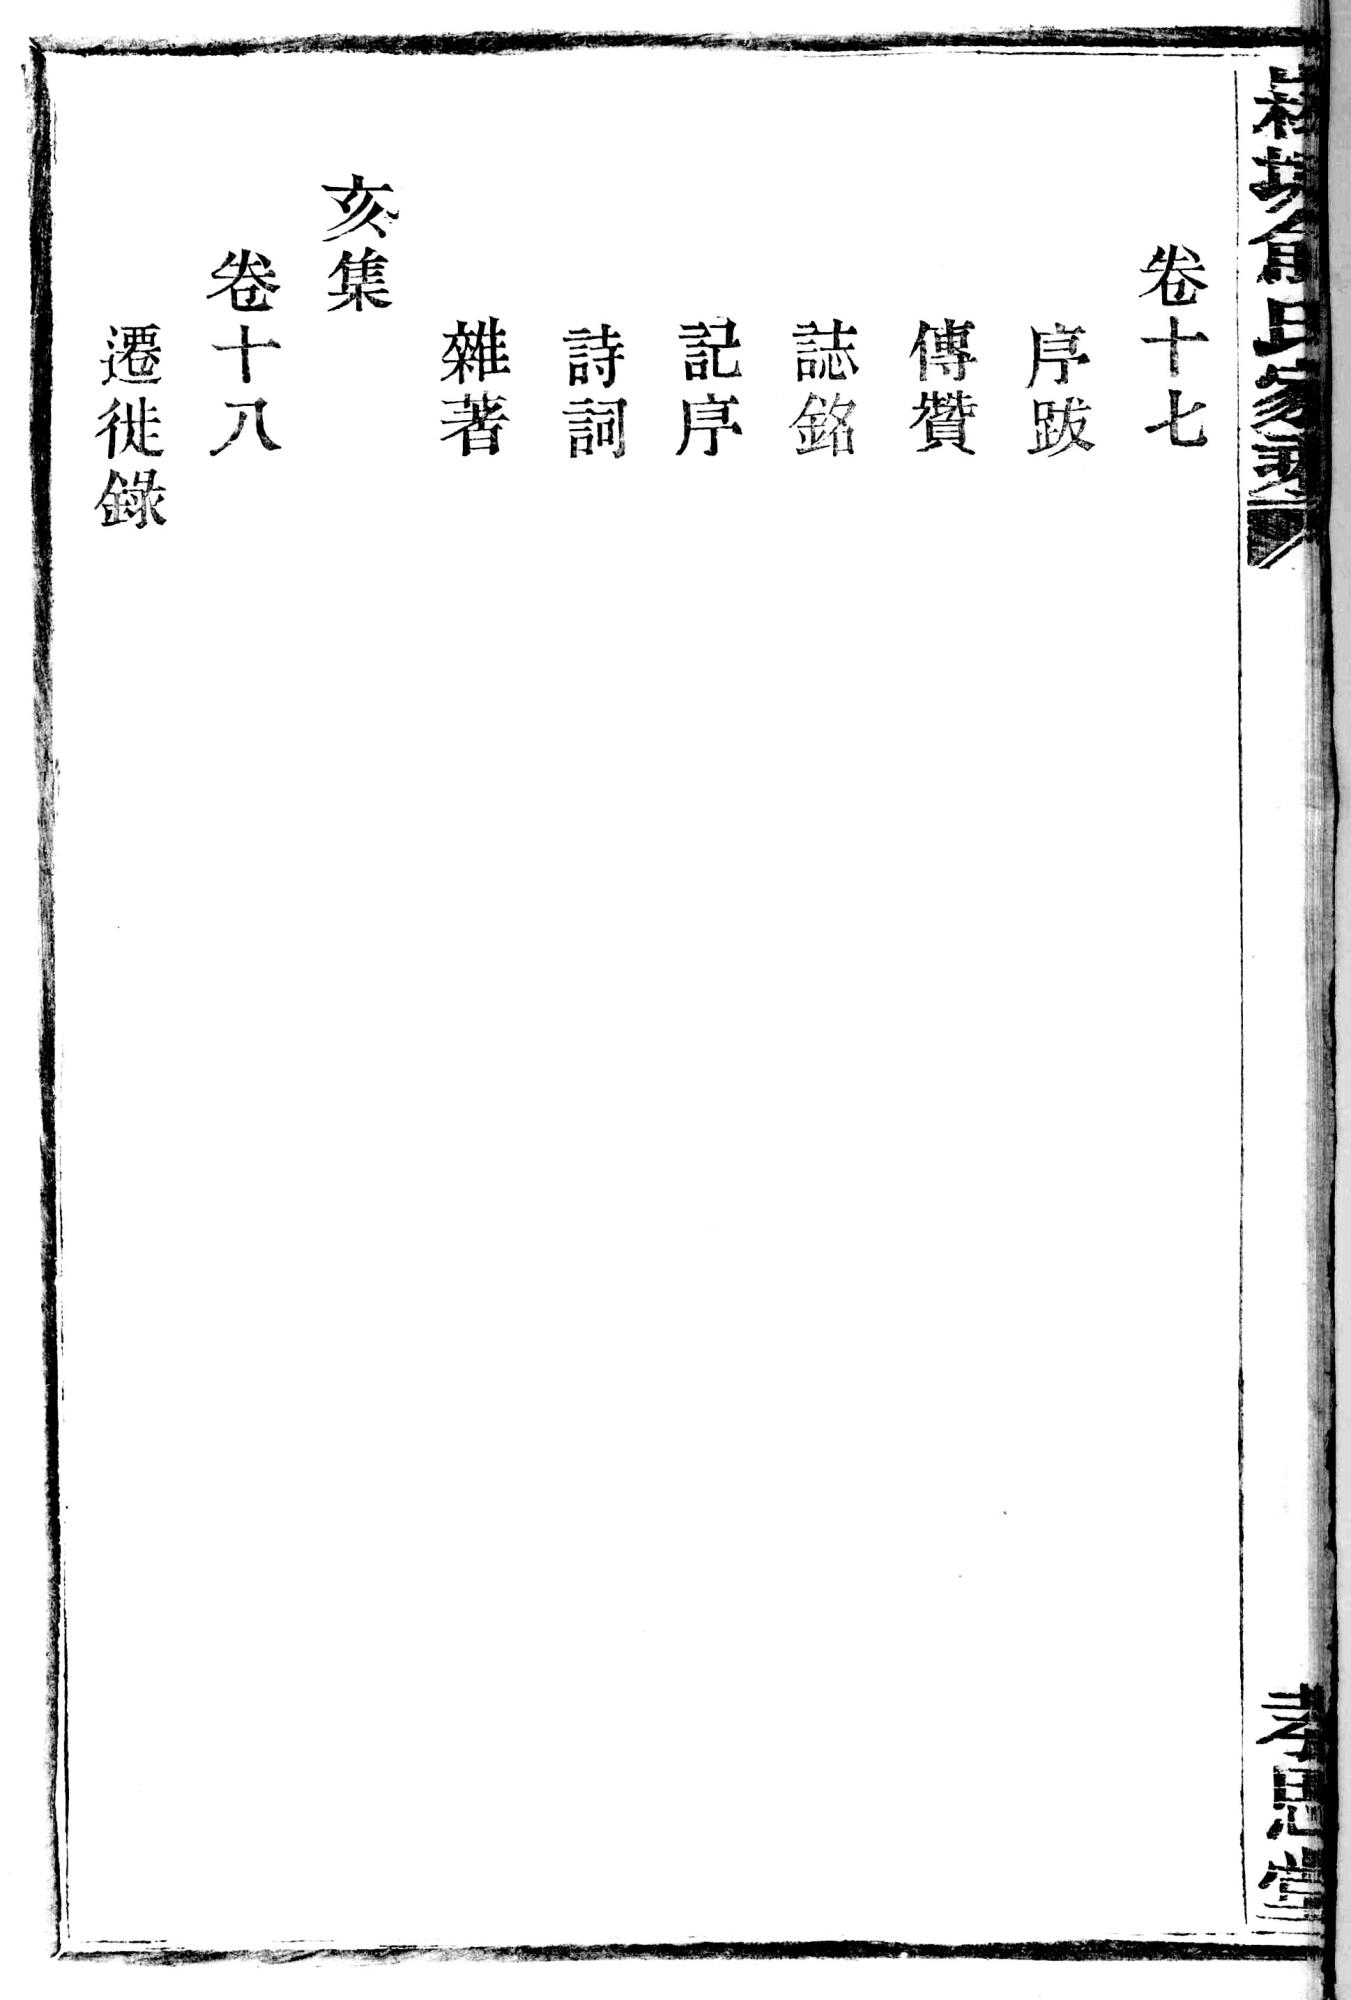 卷十七
序跋
傳贊
誌銘
記序
詩詞
雜著
亥集
卷十八
遷徙錄
氏家
孝思堂